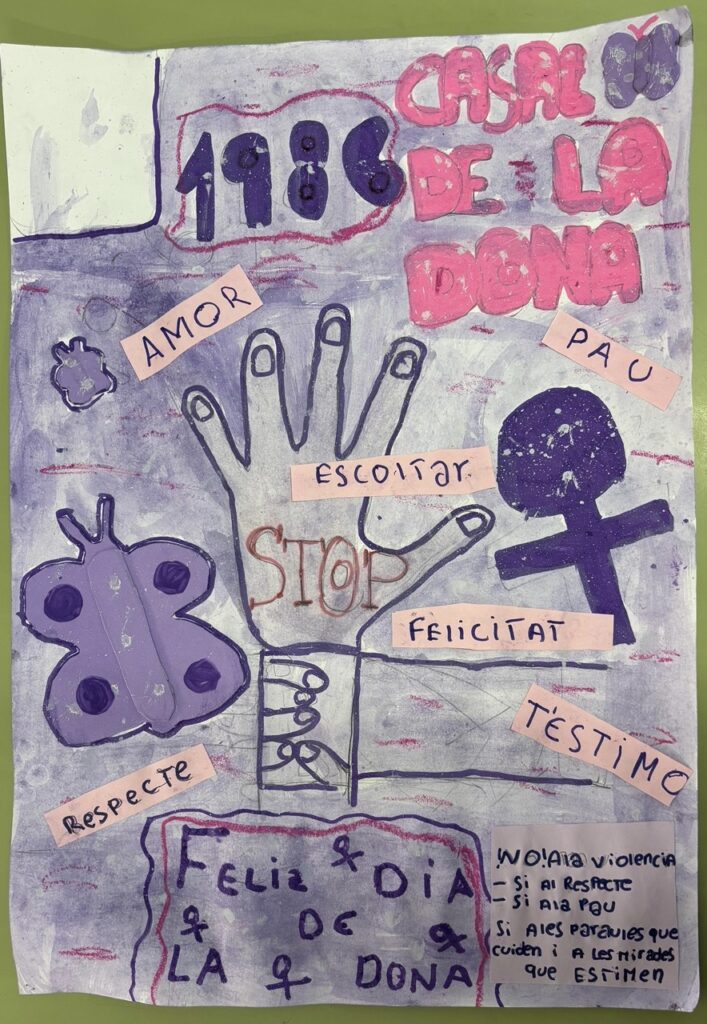 1986
CASAL
DE LA
DONA
AMOR
PAU
ESCOLTAr
STOP
FELICITAT
T'ESTIMO
RESPECTE
FELIZ DIA
DE
LA DONA
¡NO! A la violencia
- Si Al RESPECTE
- Si A la PAU
Si A les PARAULES que
cuiden i A les MIRADES
que ESTIMEN